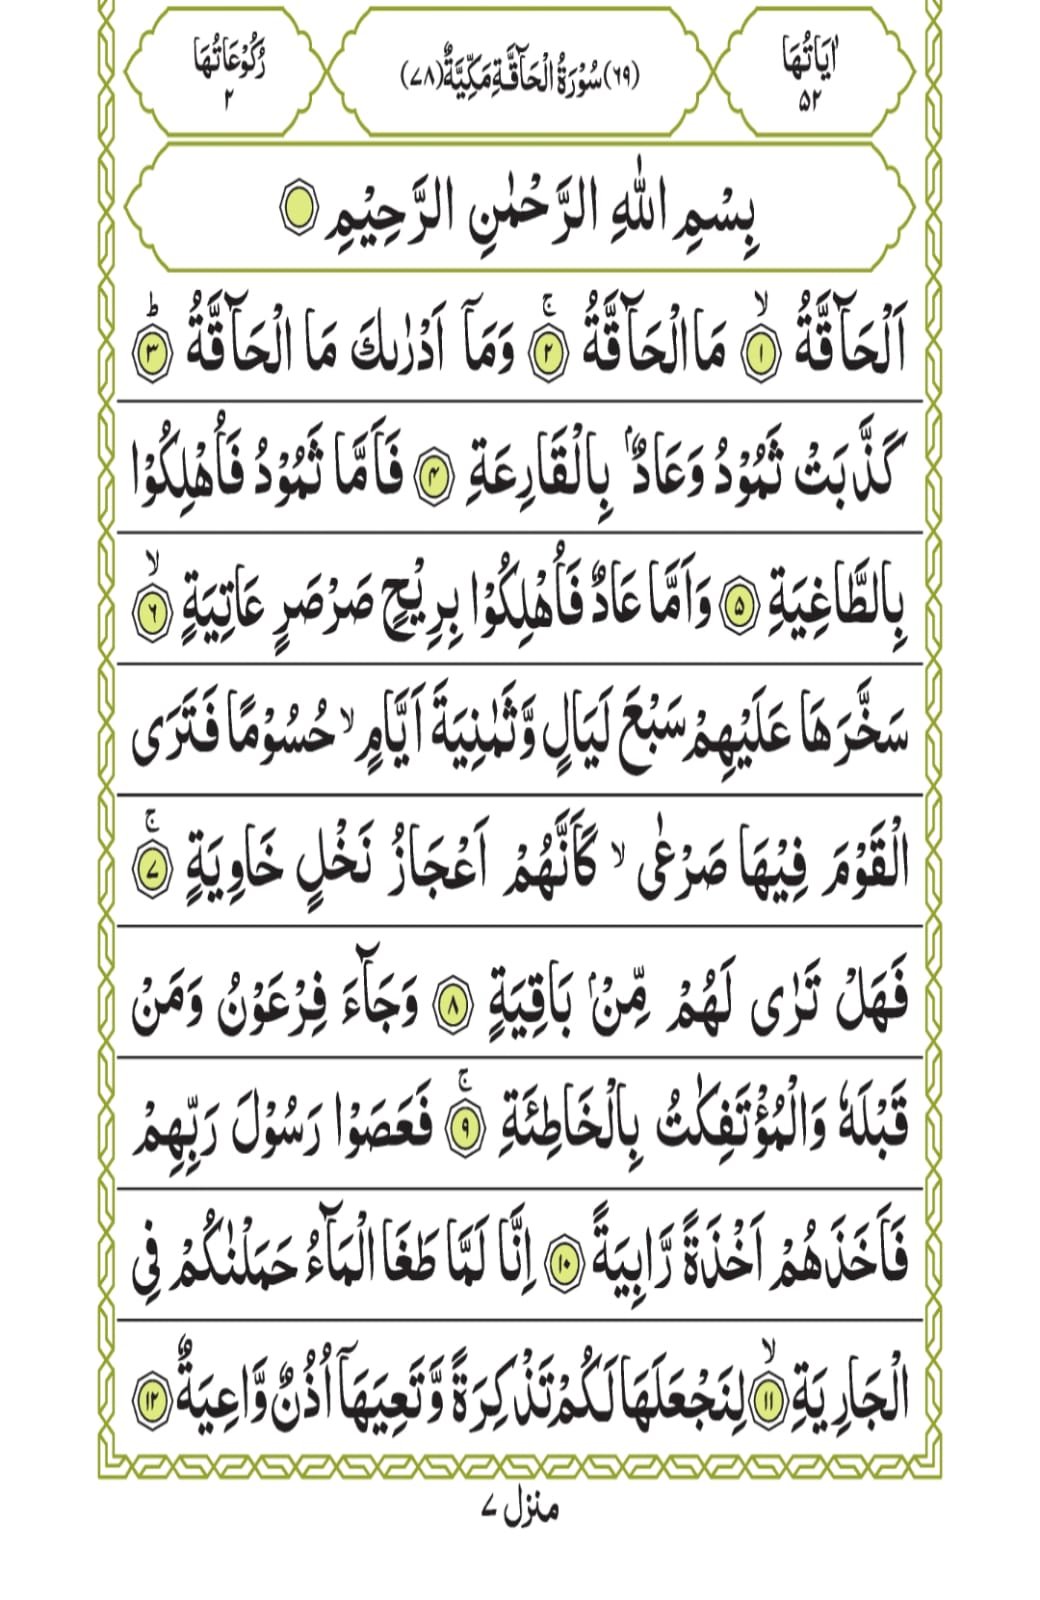 اٰيَاتُهَا ٥٢
(٦٩) سُوْرَةُ الْحَآقَّةِ مَكِّيَّةٌ (٧٨)
رُكُوْعَاتُهَا ٢
بِسْمِ اللّٰهِ الرَّحْمٰنِ الرَّحِيْمِ
اَلْحَآقَّةُ ۙ﴿١﴾ مَا الْحَآقَّةُ ۚ﴿٢﴾ وَمَآ اَدْرٰىكَ مَا الْحَآقَّةُ ؕ﴿٣﴾
كَذَّبَتْ ثَمُوْدُ وَعَادٌۢ بِالْقَارِعَةِ ﴿٤﴾ فَاَمَّا ثَمُوْدُ فَاُهْلِكُوْا
بِالطَّاغِيَةِ ﴿٥﴾ وَاَمَّا عَادٌ فَاُهْلِكُوْا بِرِيْحٍ صَرْصَرٍ عَاتِيَةٍ ۙ﴿٦﴾
سَخَّرَهَا عَلَيْهِمْ سَبْعَ لَيَالٍ وَّثَمٰنِيَةَ اَيَّامٍ ۙ حُسُوْمًا فَتَرَى
الْقَوْمَ فِيْهَا صَرْعٰى ۙ كَاَنَّهُمْ اَعْجَازُ نَخْلٍ خَاوِيَةٍ ۚ﴿٧﴾
فَهَلْ تَرٰى لَهُمْ مِّنْۢ بَاقِيَةٍ ﴿٨﴾ وَجَآءَ فِرْعَوْنُ وَمَنْ
قَبْلَهٗ وَالْمُؤْتَفِكٰتُ بِالْخَاطِئَةِ ۚ﴿٩﴾ فَعَصَوْا رَسُوْلَ رَبِّهِمْ
فَاَخَذَهُمْ اَخْذَةً رَّابِيَةً ﴿١٠﴾ اِنَّا لَمَّا طَغَا الْمَآءُ حَمَلْنٰكُمْ فِى
الْجَارِيَةِ ۙ﴿١١﴾ لِنَجْعَلَهَا لَكُمْ تَذْكِرَةً وَّتَعِيَهَآ اُذُنٌ وَّاعِيَةٌ ﴿١٢﴾
منزل ٧